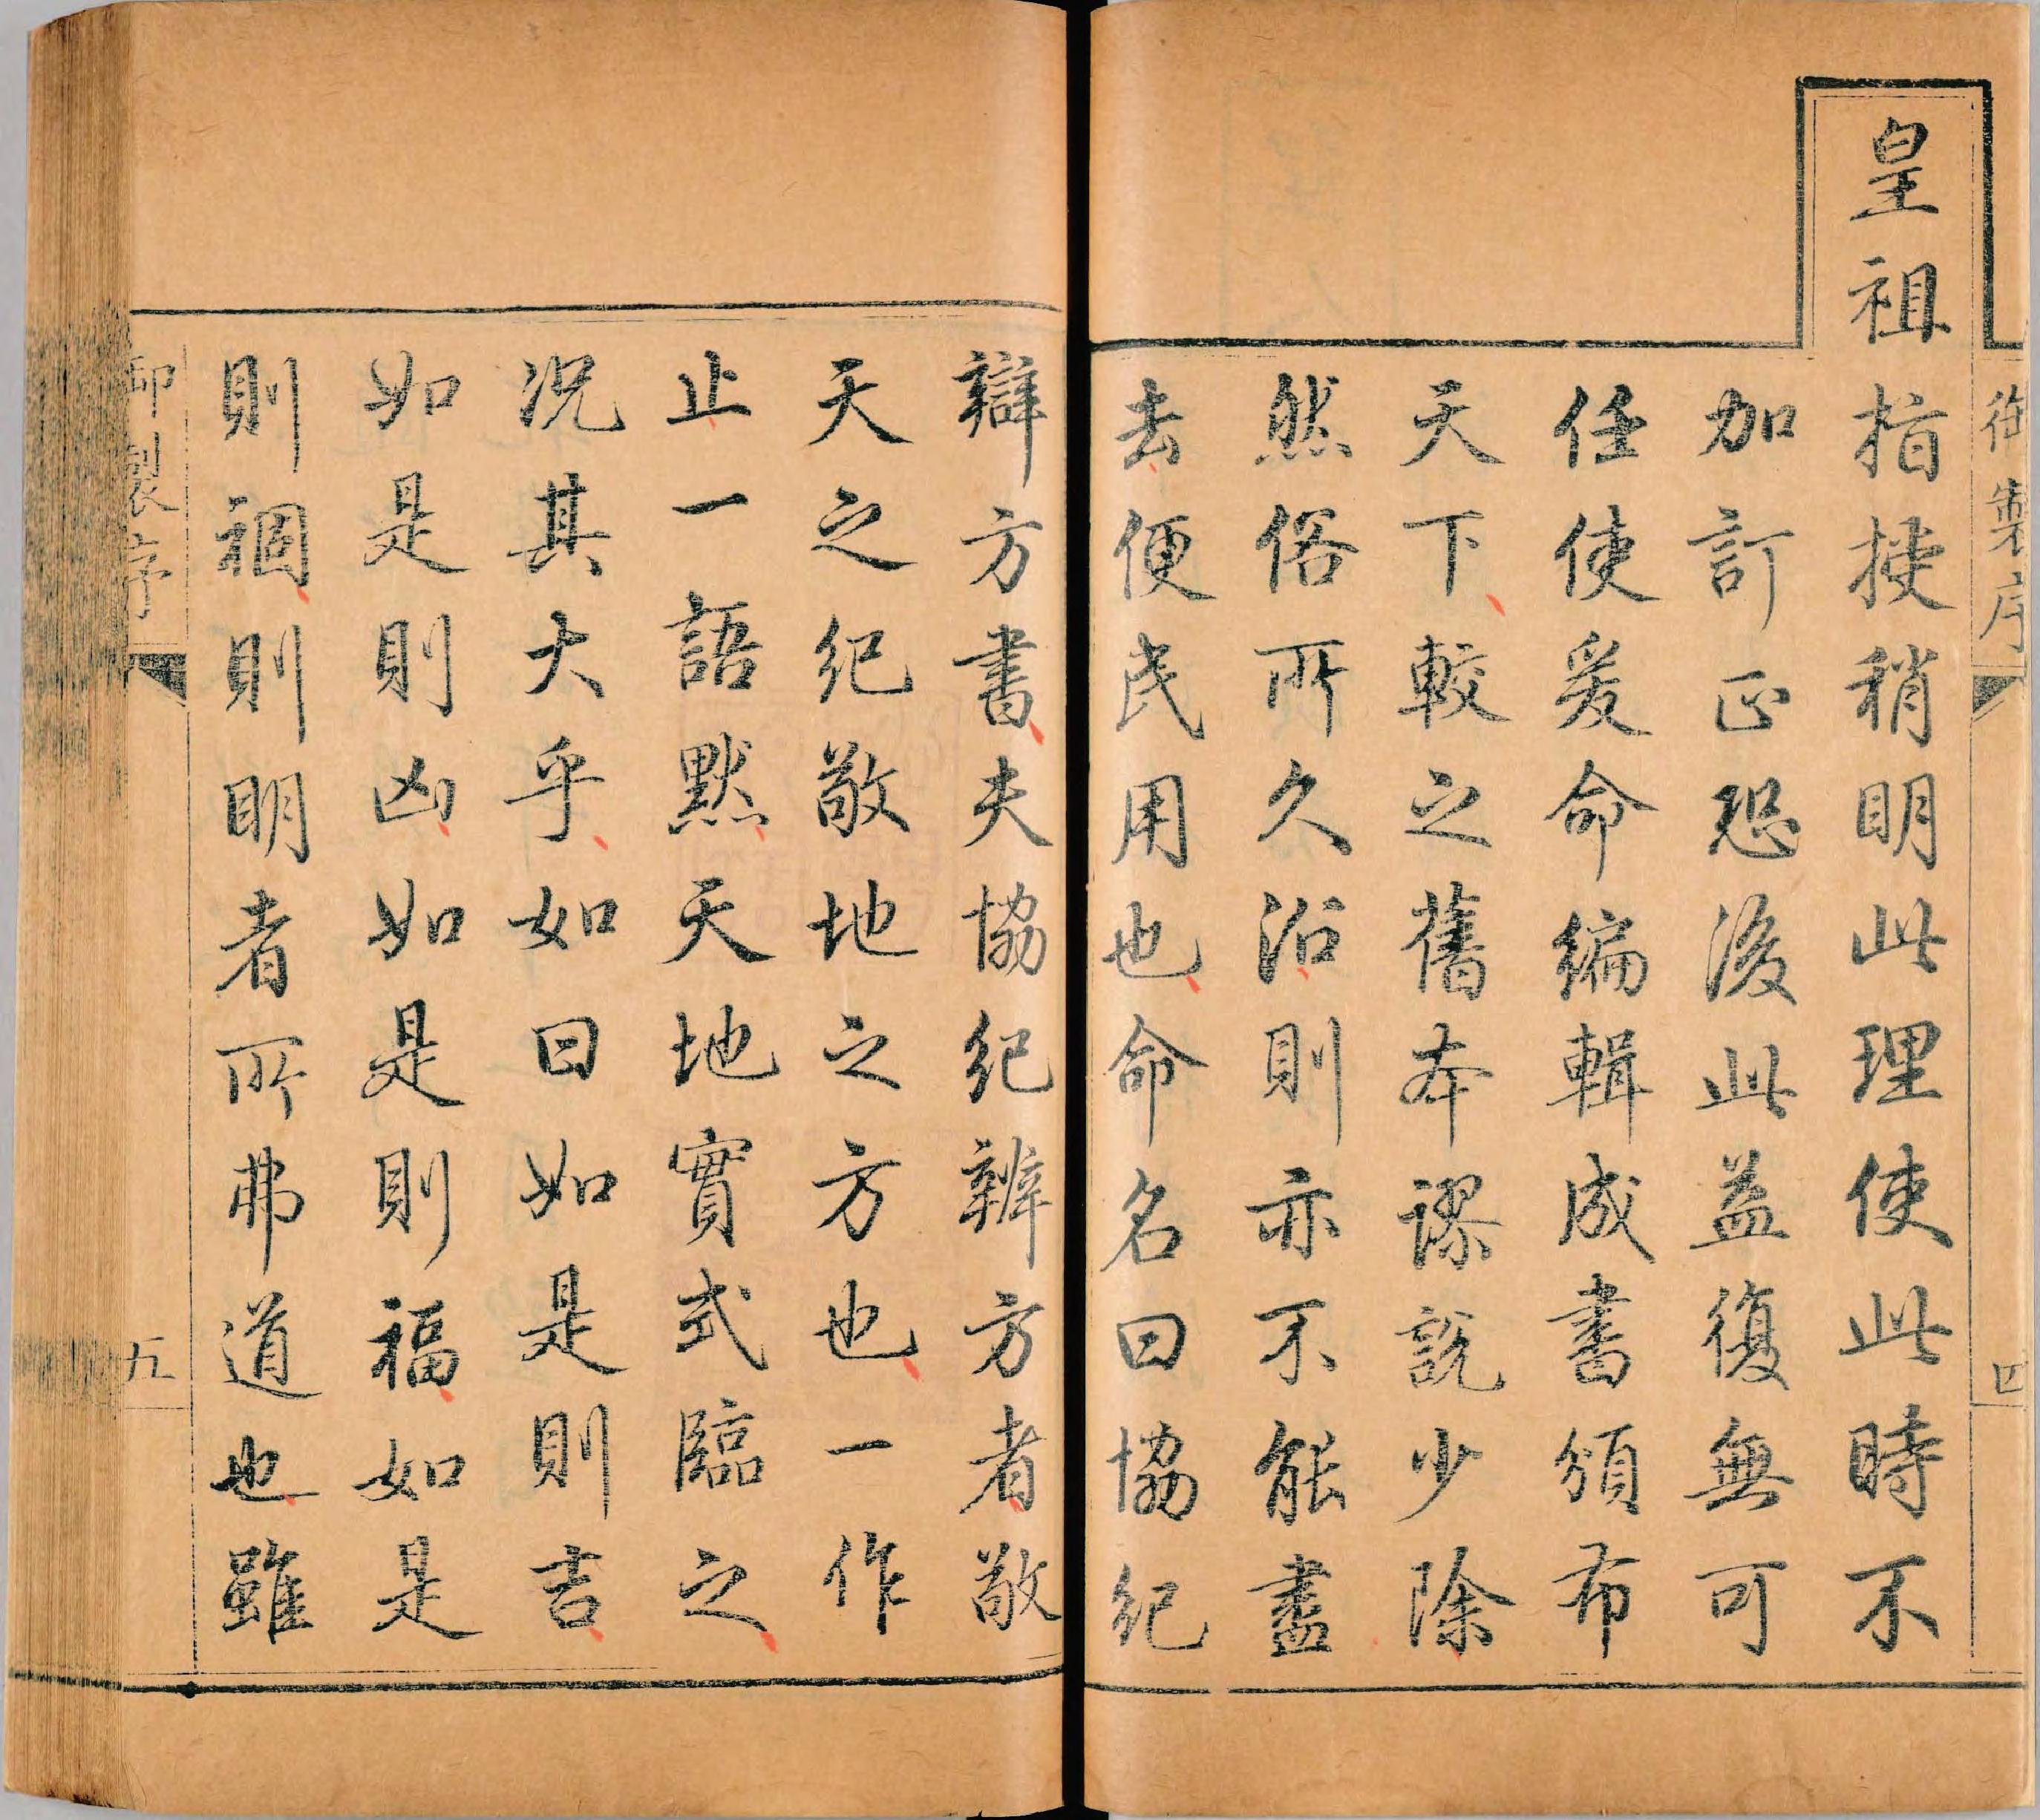 御製序
四
皇祖指授稍明此理使此時不
加訂正恐後此益復無可
任使爰命編輯成書頒布
天下較之舊本謬説少除
然俗所久沿則亦不能盡
去便民用也命名曰協紀
辯方書夫協紀辨方者敬
天之紀敬地之方也一作
止一語默天地實式臨之
况其大乎如曰如是則吉
如是則凶如是則福如是
則禍則明者所弗道也雖
御製序
五